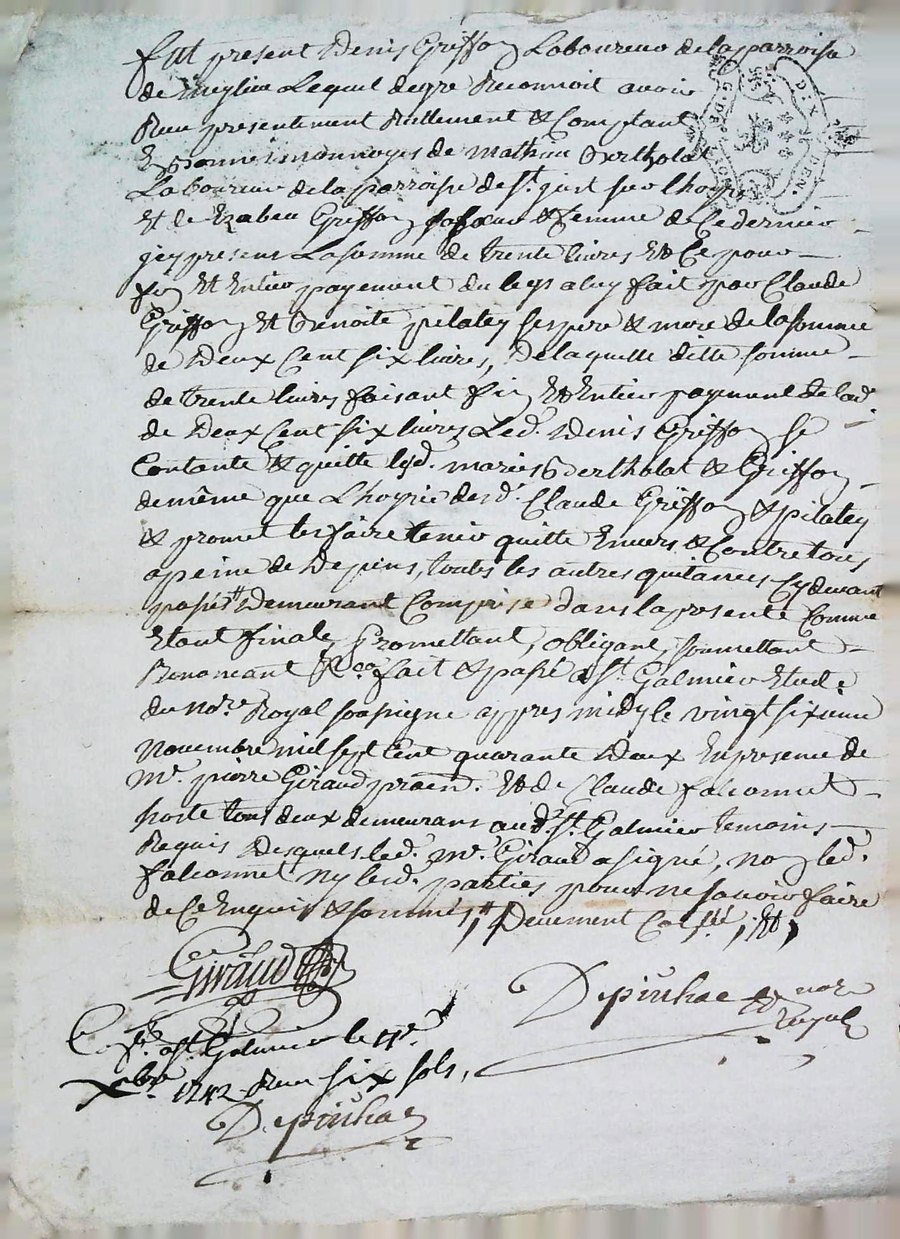 fut present Denis Griffon Laboureur de la parroise
de Meylieu Lequel de gre Reconnoit avoir
Receu presentement Reellement & Comptant
En bonnes monnoyes de Mathieu Bertholat
Laboureur de la parroise de St. just sur lhoyre
Et de Izabeau Griffon sa soeur & femme de Ce dernier
jcy present La somme de trente livres Et Ce pour
fin Et Entier payement du legs a luy fait par Claude
Griffon Et Benoite pilatey ses pere & mere de la somme
de Deux Cent six livres, de laquelle ditte somme
de trente livres faisant fin Et Entier payement de lad.
de Deux Cent six livres Led. Denis Griffon se
Contante & quitte lesd. maries Bertholat & Griffon
de même que L'hoyrie desd. Claude Griffon & pilatey
& promet les faire tenir quitte Envers & Contre tous
a peine de Depens, touts les autres quitances Cy devant
passées Demeurant Comprise dans la presente Comme
Etant finale, Promettant, obligant, soumettant
Renoncant &ca. fait & passé a St. Galmier Etude
du nore. Royal soussigne appres midy le vingt sixieme
Novembre mil sept Cent quarante Deux En presence de
Mr. pierre Giraud pratn. Et de Claude falconnet
hoste tous deux demeurans aud. St. Galmier temoins
Requis Desquels led. Mr. Giraud a signé, non led.
falconnet ny lesd. parties pour ne savoir faire
de Ce Enquis & sommés, Deuement
Giraud
Depiuhac nore
Royal
a St. Galmier le
Xbre. 1742 Receu six sols,
Depiuhac
DIX DEN.